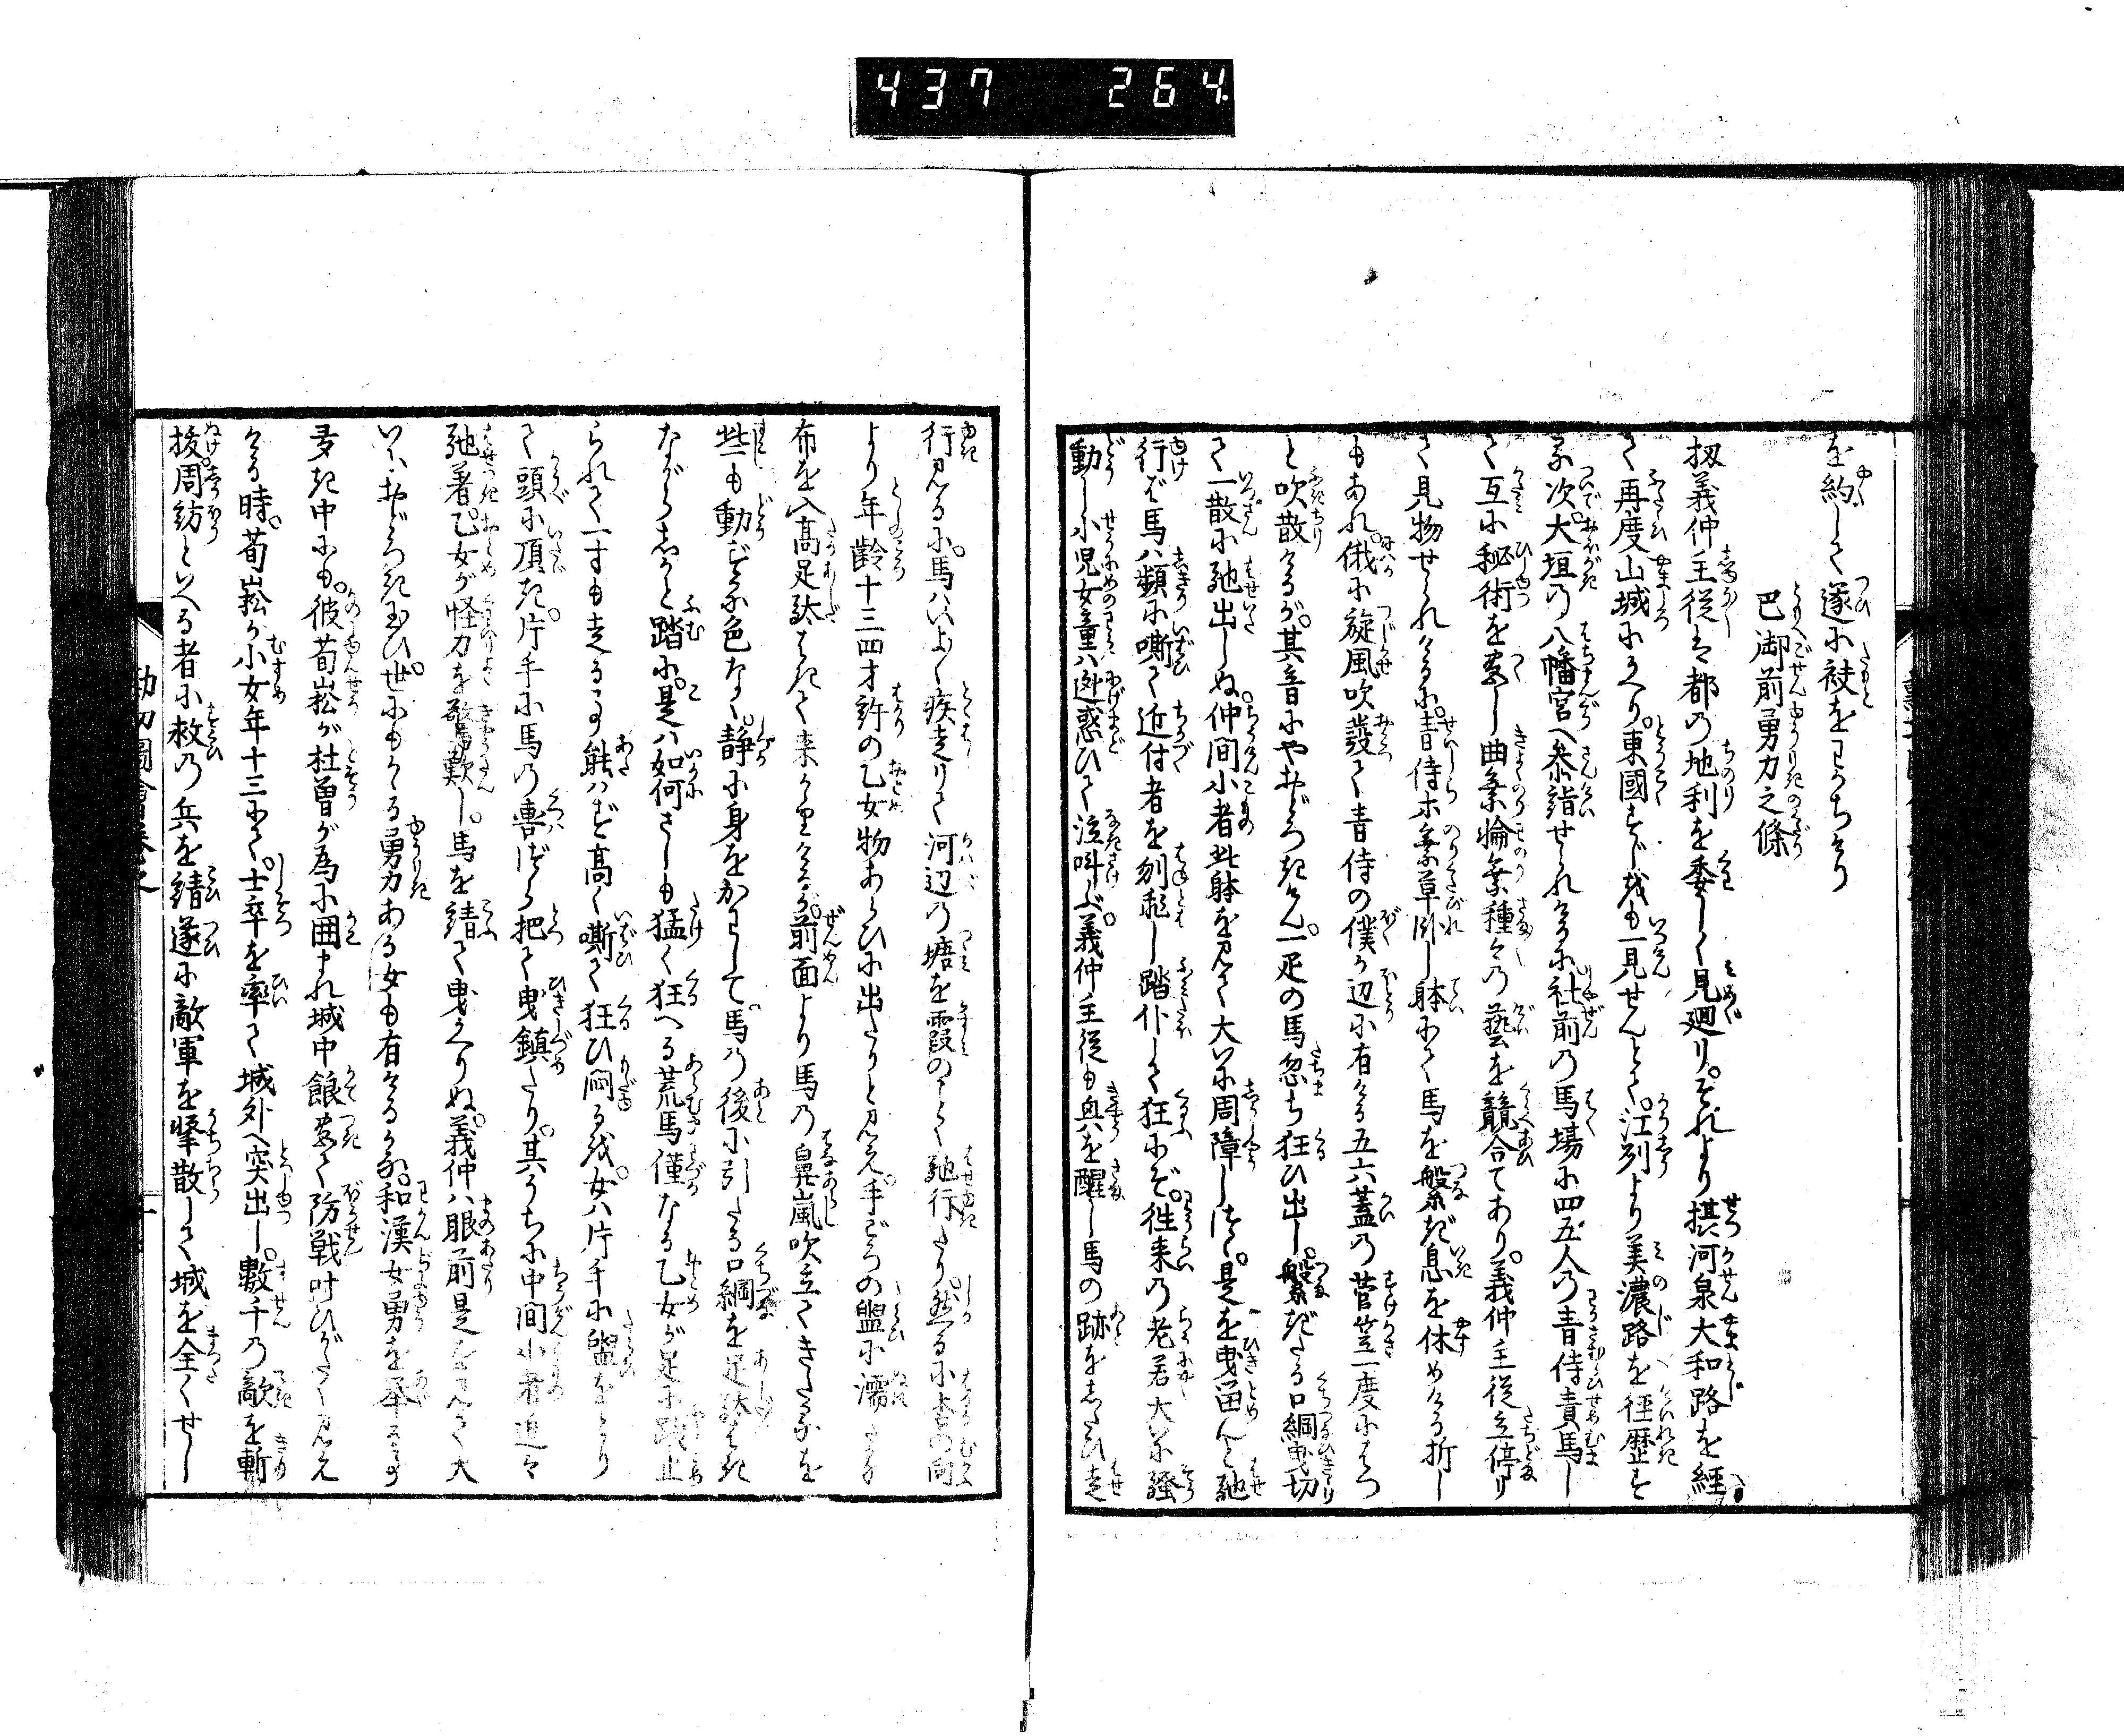 437 264.
を約して遂に袂をわかちけり
巴御前勇力之條
扨義仲主従は都の地利を委しく見廻り。それより摂河泉大和路を経
て再度山城にかへり。東國すぢをも一見せんとて。江州より美濃路を径歴す
る次。大垣の八幡宮へ参詣せられけるに社前の馬場に四五人の青侍責馬し
て互に秘術を尽し曲乗輪乗種々の藝を競合てあり。義仲主従立停り
て見物せられけるに。青侍ホ乗草臥し躰にて馬を繋ぎ息を休めける折し
もあれ。俄に旋風吹發て青侍の僕が辺に有ける五六蓋の菅笠一度にはつ
と吹散けるが。其音にやおどろきけん。一疋の馬忽ち狂ひ出し。繋ぎたる口綱曳切
て一散に馳出しぬ。仲間小者此躰を見て大いに周障しつゝ。是を曳留んと馳
行ば馬ハ頻に嘶て近付者を刎飛し踏仆して狂にぞ。往来の老若大いに騒
動し小児女童ハ逃惑ひて泣叫ぶ。義仲主従も興を醒し馬の跡をしたひ走
行見るに。馬ハいよ〱疾走りて河辺の塘を霞のごとく馳行たり。然るに森の向
より年齢十三四才許の乙女物あらひに出たりと見え。手ごろの盥に濡たる
布を入高足駄はきて来かゝりけるが。前面より馬の鼻嵐吹立てきたるを
些も動ずる色なく。静に身をかわして。馬の後に引たる口綱を足駄はき
ながらしかと踏に。是ハ如何さしも猛く狂へる荒馬僅なる乙女が足に踏止
られて一寸も走る事能ハず高く嘶て狂ひ悶るを。女ハ片手に盥をとり
て頭に頂き。片手に馬の轡づら把て曳鎮たり。其うちに中間小者追々
馳著。乙女が怪力を驚歎し。馬を請て曳かへりぬ。義仲ハ眼前是を見て大
いにおどろき玉ひ。世にもかゝる勇力ある女も有ける歟。和漢女勇を挙る事
多き中にも。彼荀崧が杜曽が為に囲まれ城中餓尽て防戦叶ひがたく見え
ける時。荀崧が小女年十三にて。士卒を率て城外へ突出し。數千の敵を斬
抜。周訪といへる者に救の兵を請遂に敵軍を撃散して城を全くせし